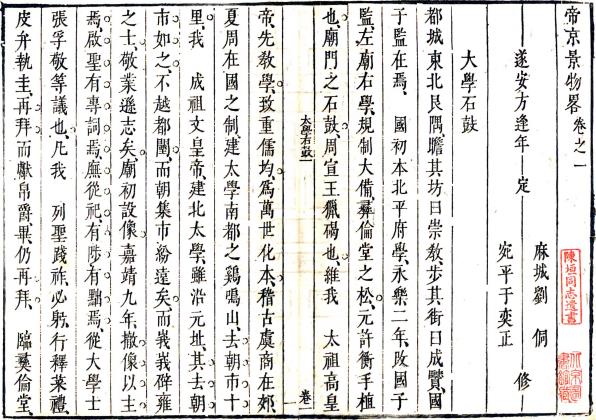 帝京景物畧 卷之一
遂安方逢年 定
麻城劉侗
宛平于奕正 修
大學石鼓
都城東北艮隅瞻其坊曰崇教步其街曰成賢國
子監在焉 國初本北平府學永樂二年改國子
監左廟右學規制大備彝倫堂之松元許衡手植
也廟門之石鼓周宣王獵碣也維我 太祖高皇
太學石鼓 卷一
帝先教學致重儒均爲萬世化本稽古虞商在郊
夏周在國之制建太學南都之鷄鳴山去朝市十
里我 成祖文皇帝建北太學雖沿元址其去朝
市如之不越都闉而朝集市紛遠矣而峩峩辟雍
之士敬業遜志矣廟初設像嘉靖九年撤像以主
焉啟聖有專祠焉廡從祀有陟有黜焉從大學士
張孚敬等議也凡我 列聖踐祚必躬行釋菜禮
皮弁執圭再拜而獻帛爵畢仍再拜 臨彞倫堂
陳垣同志遺書